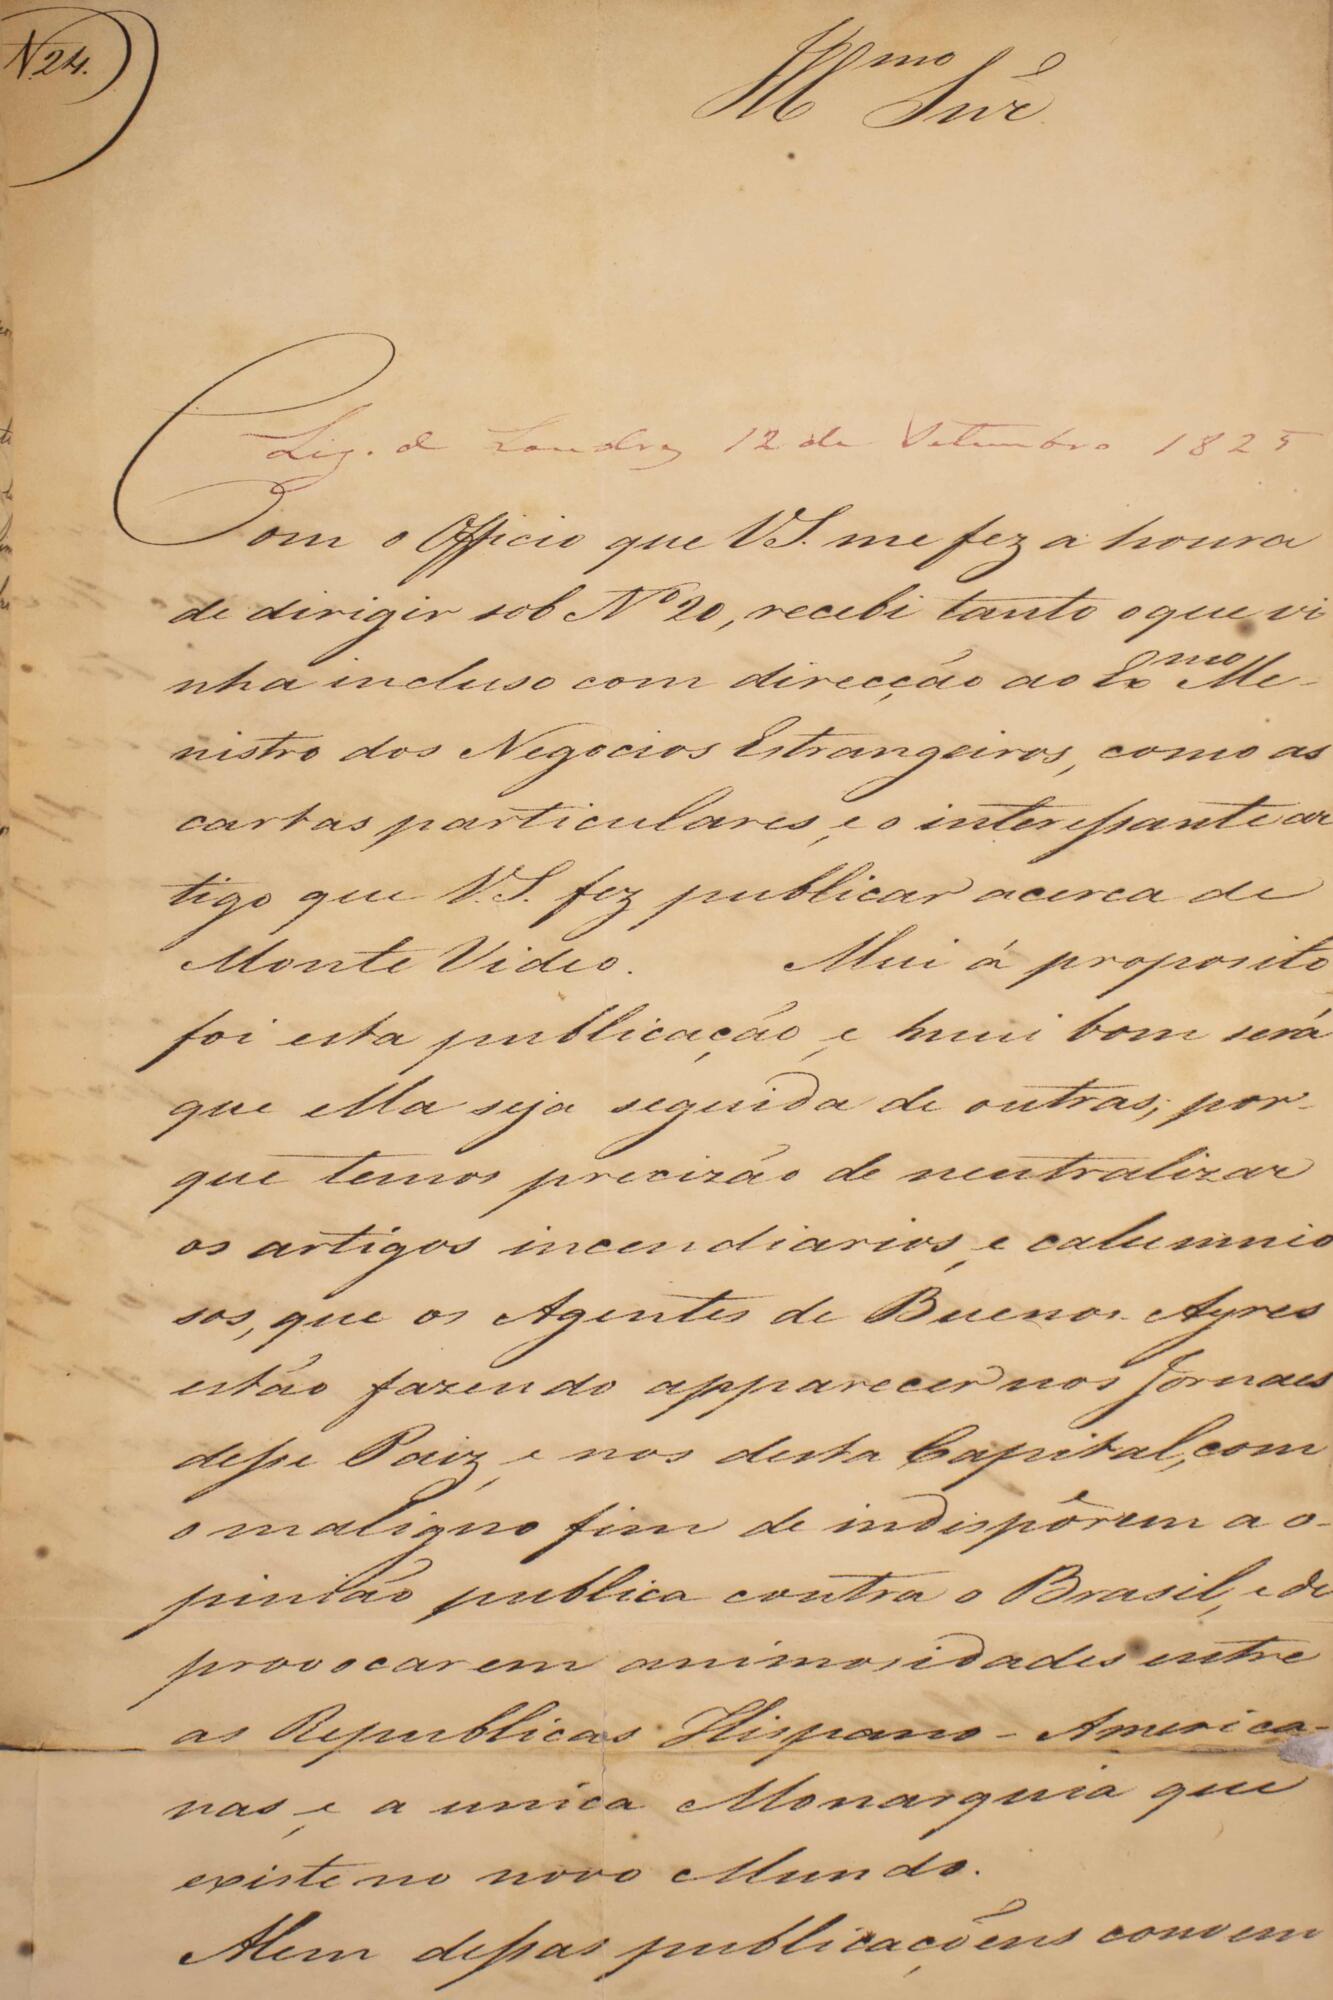 N. 24.
Illmo Snr.
Leg. de Londres 12 de Setembro 1825
Com o Officio que V.S. me fez a honra
de dirigir sob No 20, recebi tanto o que vi
nha incluso com direcção ao Exmo Me-
nistro dos Negocios Estrangeiros, como as
cartas particulares, e o interessante ar
tigo que V.S. fez publicar acerca de
Monte Video. Mui á proposito
foi esta publicação, e mui bom será
que ella seja seguida de outras; por-
que temos precizão de neutralizar
os artigos incendiarios, e calumnio
sos, que os Agentes de Buenos-Ayres
estão fazendo apparecer nos Jornaes
desse Paiz, e nos desta Capital, com
o maligno fim de indispôrem a o-
pinião publica contra o Brasil, e de
provocarem animosidades entre
as Republicas Hispano-America-
nas, e a unica Monarquia que
existe no novo Mundo.
Alem dessas publicaçõens convem